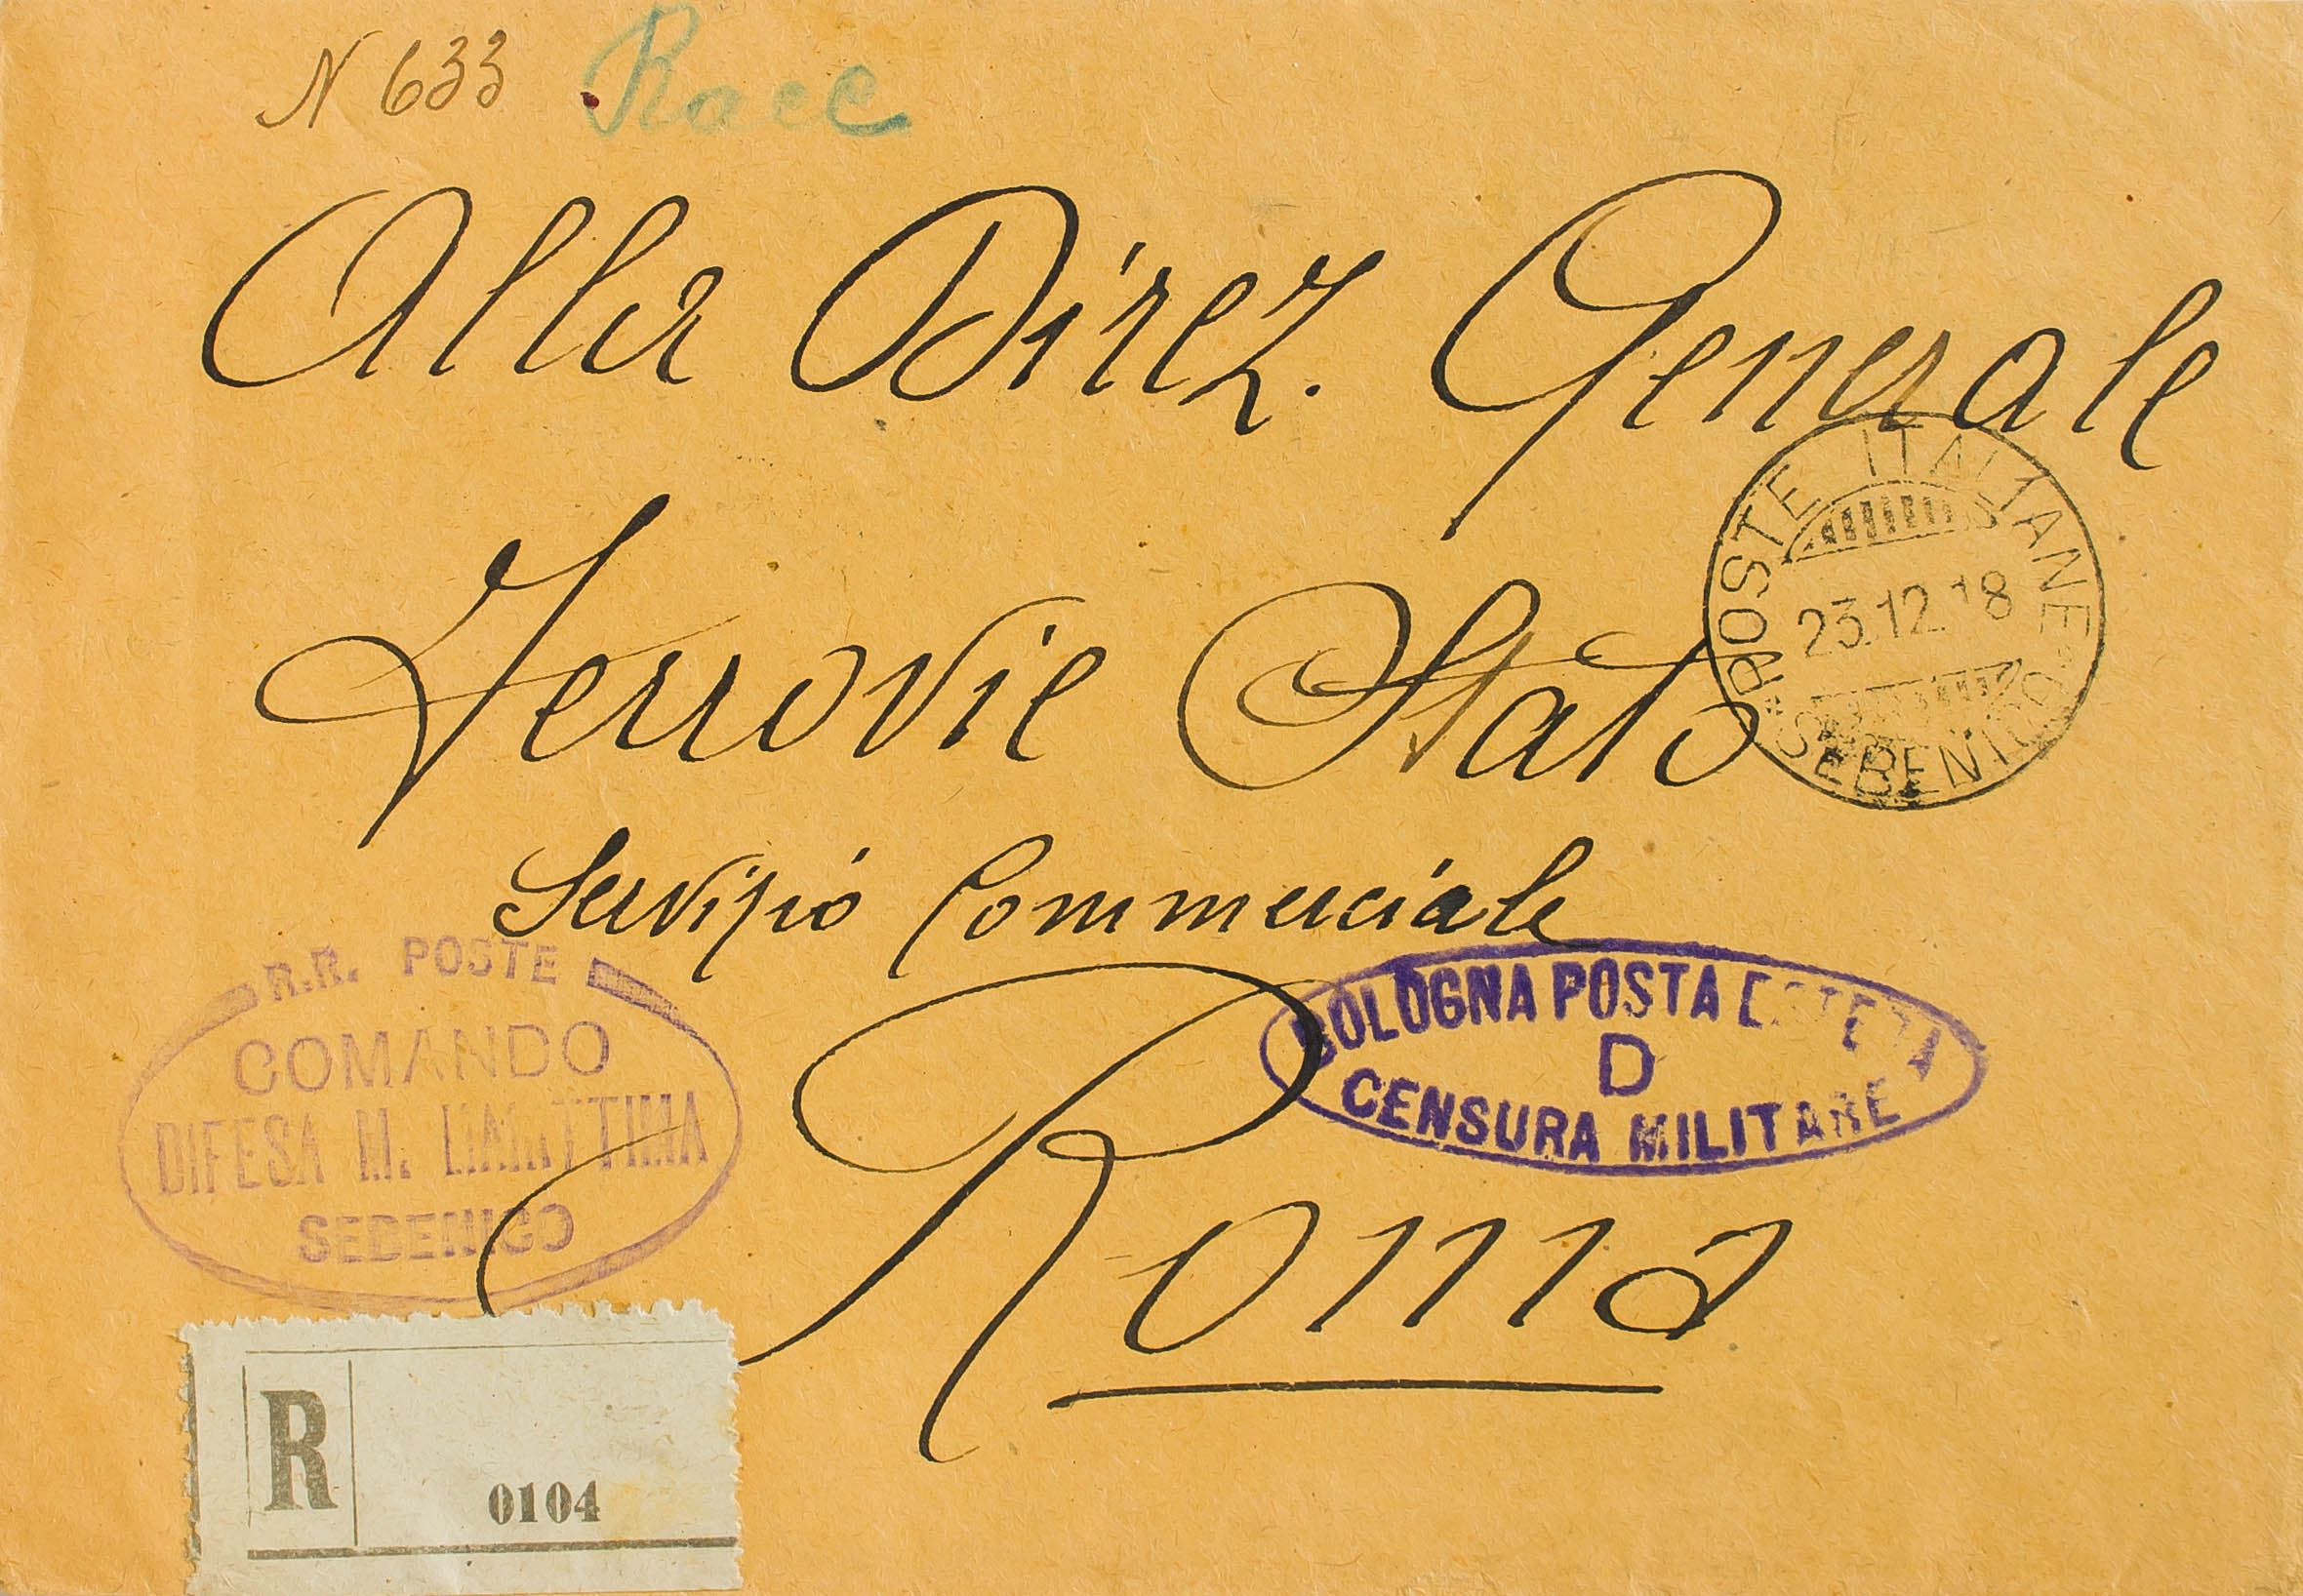 N 633 Racc
Alla Direz. Generale
Ferrovie Stato
POSTE ITALIANE
23.12.18
SEBENICO
Servizio Commerciale
R.R. POSTE
COMANDO
DIFESA M. MARITTIMA
SEBENICO
BOLOGNA POSTA ESTERA
D
CENSURA MILITARE
Roma
R
0104